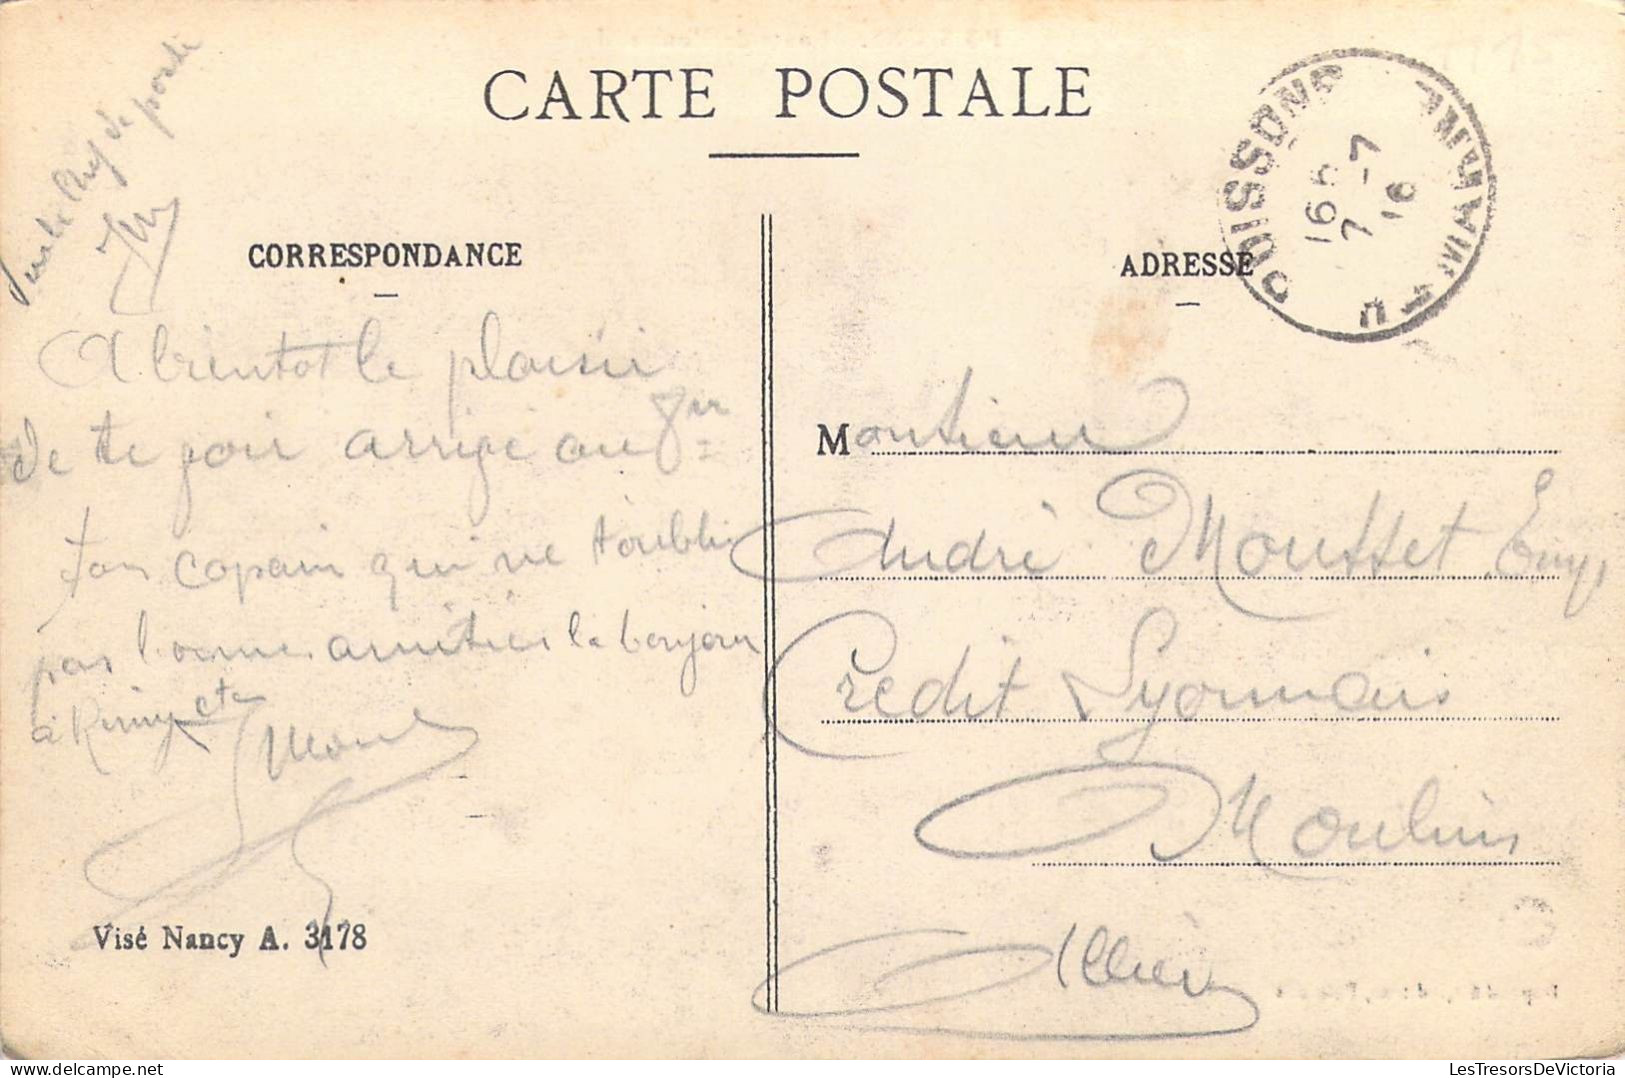 CARTE POSTALE
CORRESPONDANCE
A bientot le plaisir
de te voir arrivé au 8em
ton copain qui ne t'oublie
pas bonnes amitiés le bonjour
à Rimy etc
Visé Nancy A. 3178
ADRESSE
Monsieur
André Mousset Emp.
Credit Lyonnais
Moulins
Allier
16
7 -7
16
LesTresorsDeVictoria